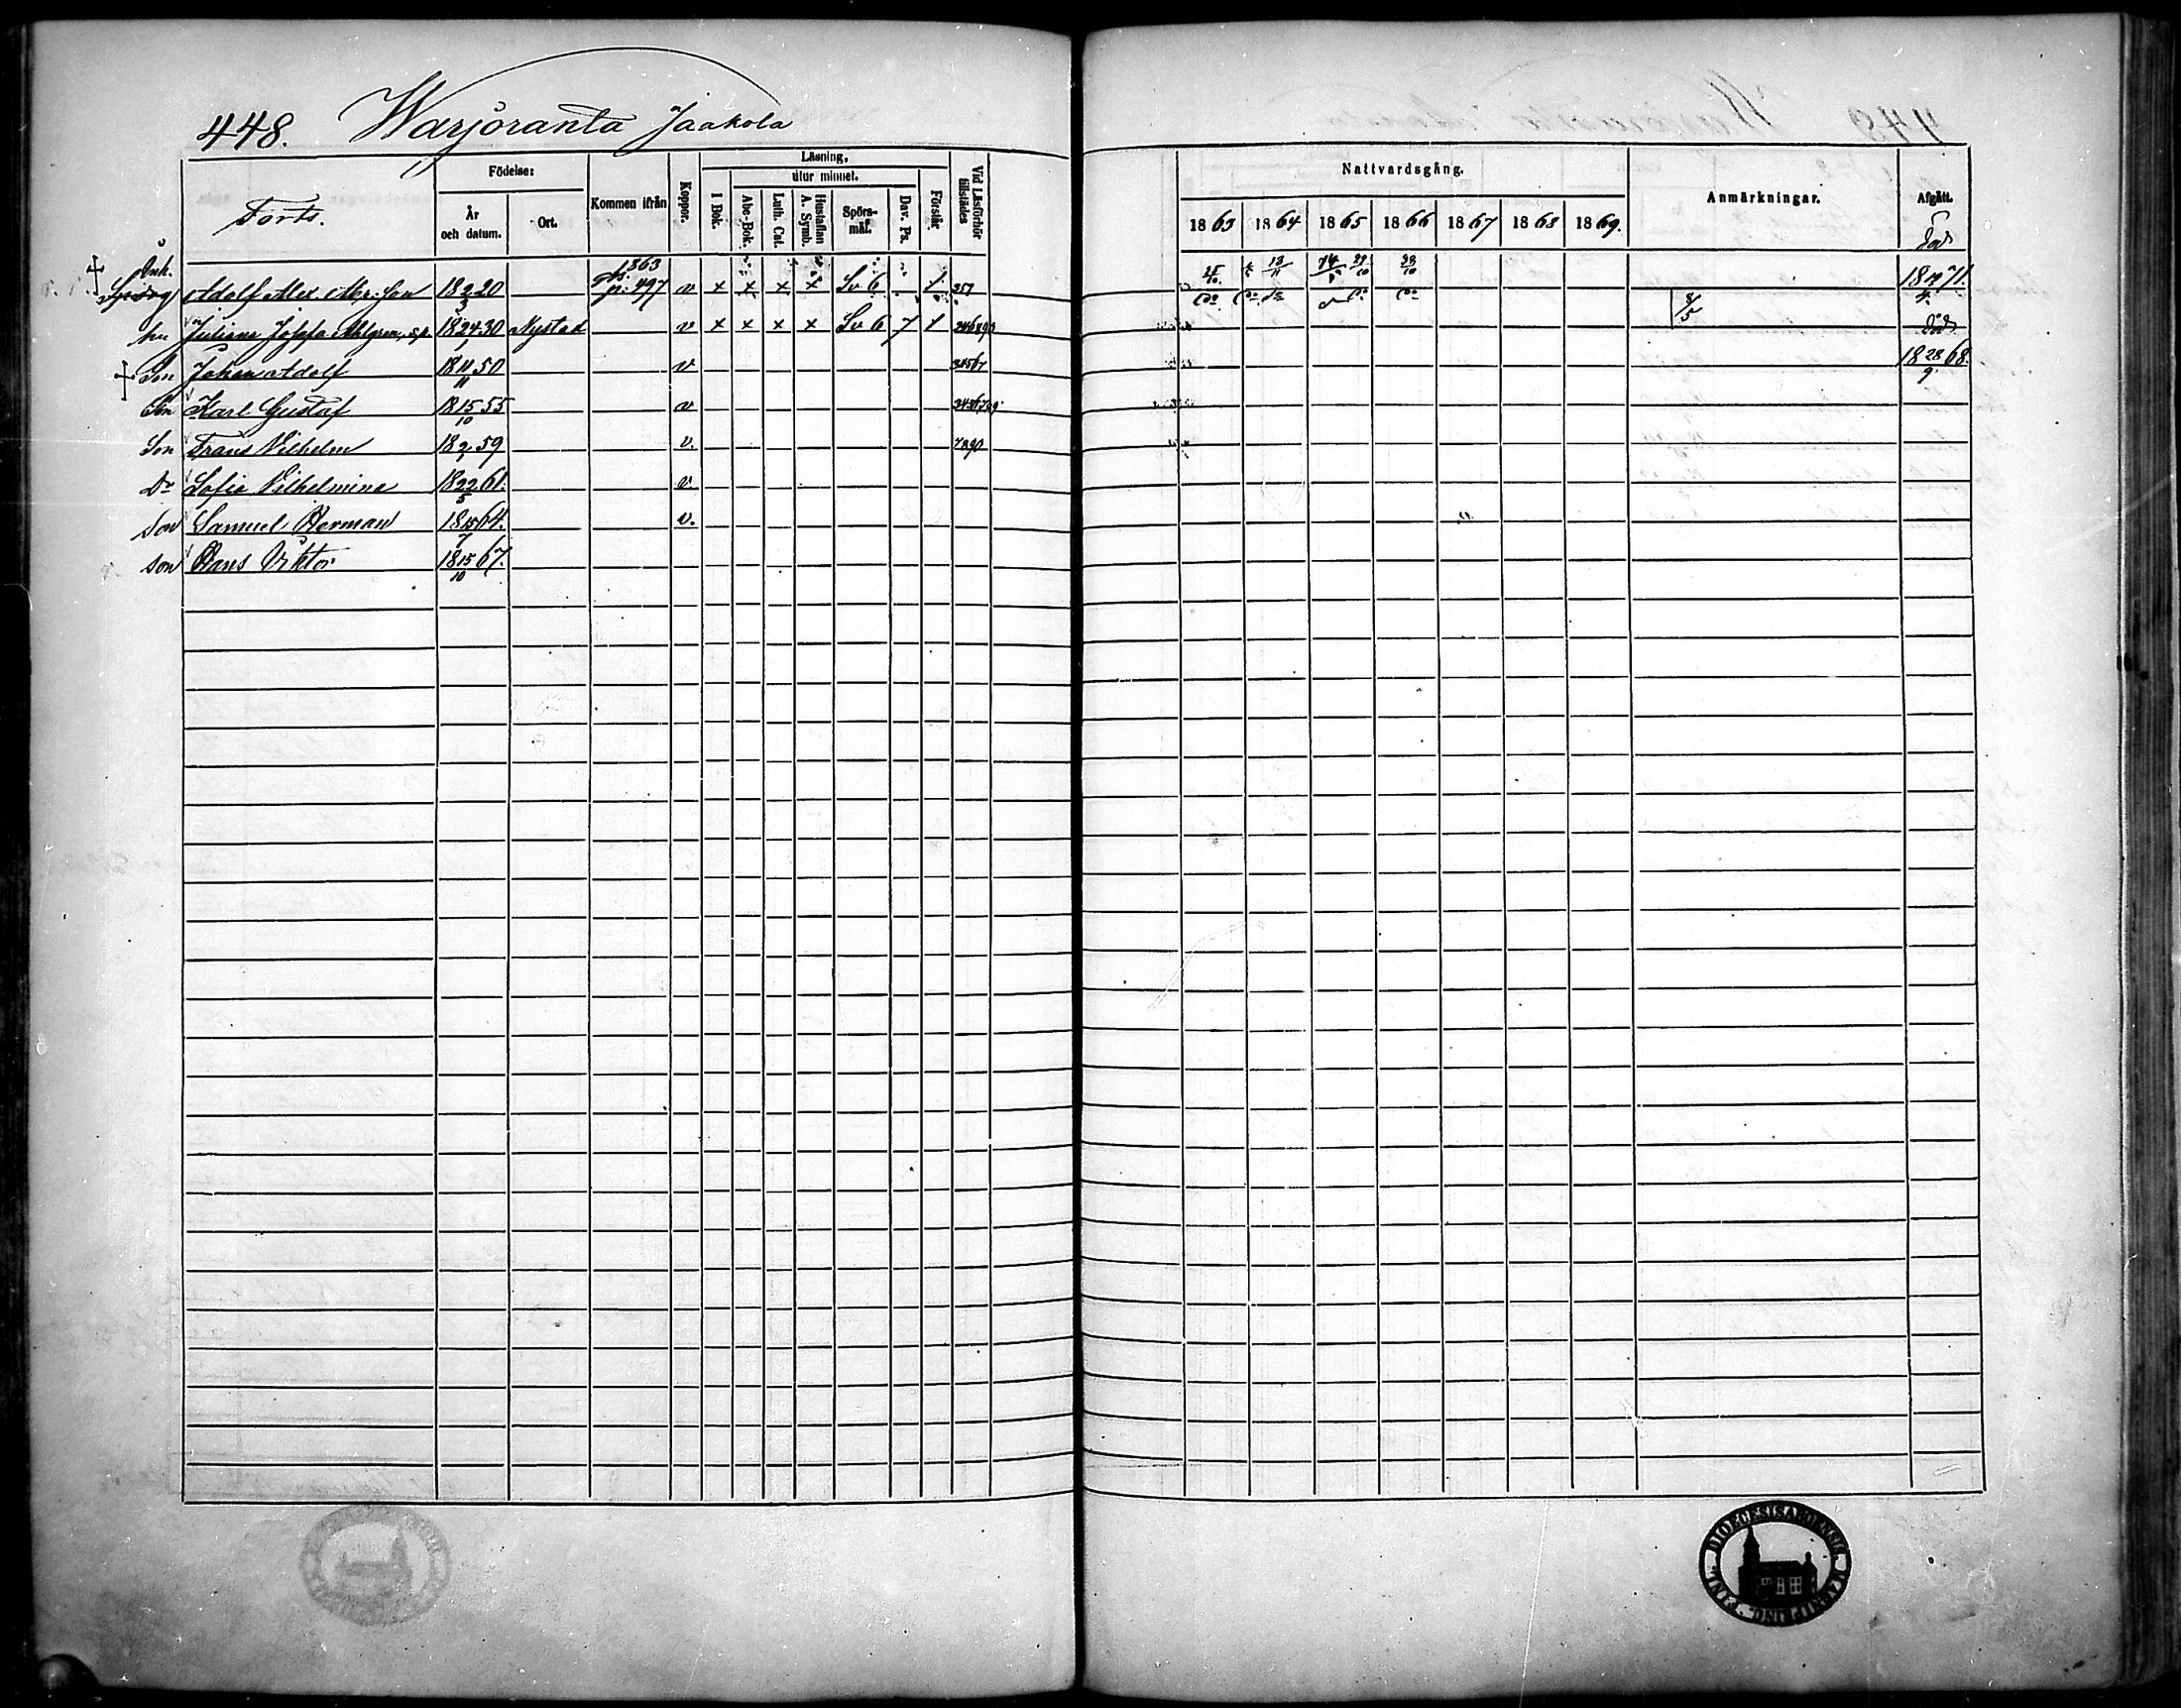 448. Warjoranta Jaakola
Forts. Födelse: År och datum. Ort. Kommen ifrån Koppor. Läsning, I Bok. utur minnet. Abc-Bok. Luth. Cat. Hustaflan A. Symb. Spörs-mål. Dav. Ps. Förstår Vid Läsförhör tillstädes
Nattvardsgång. 1863 1864 1865 1866 1867 1868 1869. Anmärkningar. Afgått.
Enk. Adolf Alex. 18 2/3 20 1863 p: 497 v x x x x Sv 6 1 357 13/11 29/10 28/10 död 18 71.
hu Juliana Josefa Ahlgren 18 24/1 30 Nystad v x x x x Sv 6 7 1 8/5
Son Johan Adolf 18 11/11 50 v 34567 död 18 28/9 68.
Son Karl Gustaf 18 15/10 55 v
Son Frans Vilhelm 18 59 v. 7890
Dr Sofia Vilhelmina 18 22/5 61. v
son Samuel Herman 18 15/7 64. v.
son Hans Viktor 18 15/10 67.
DIOECESIS ABOENSIS